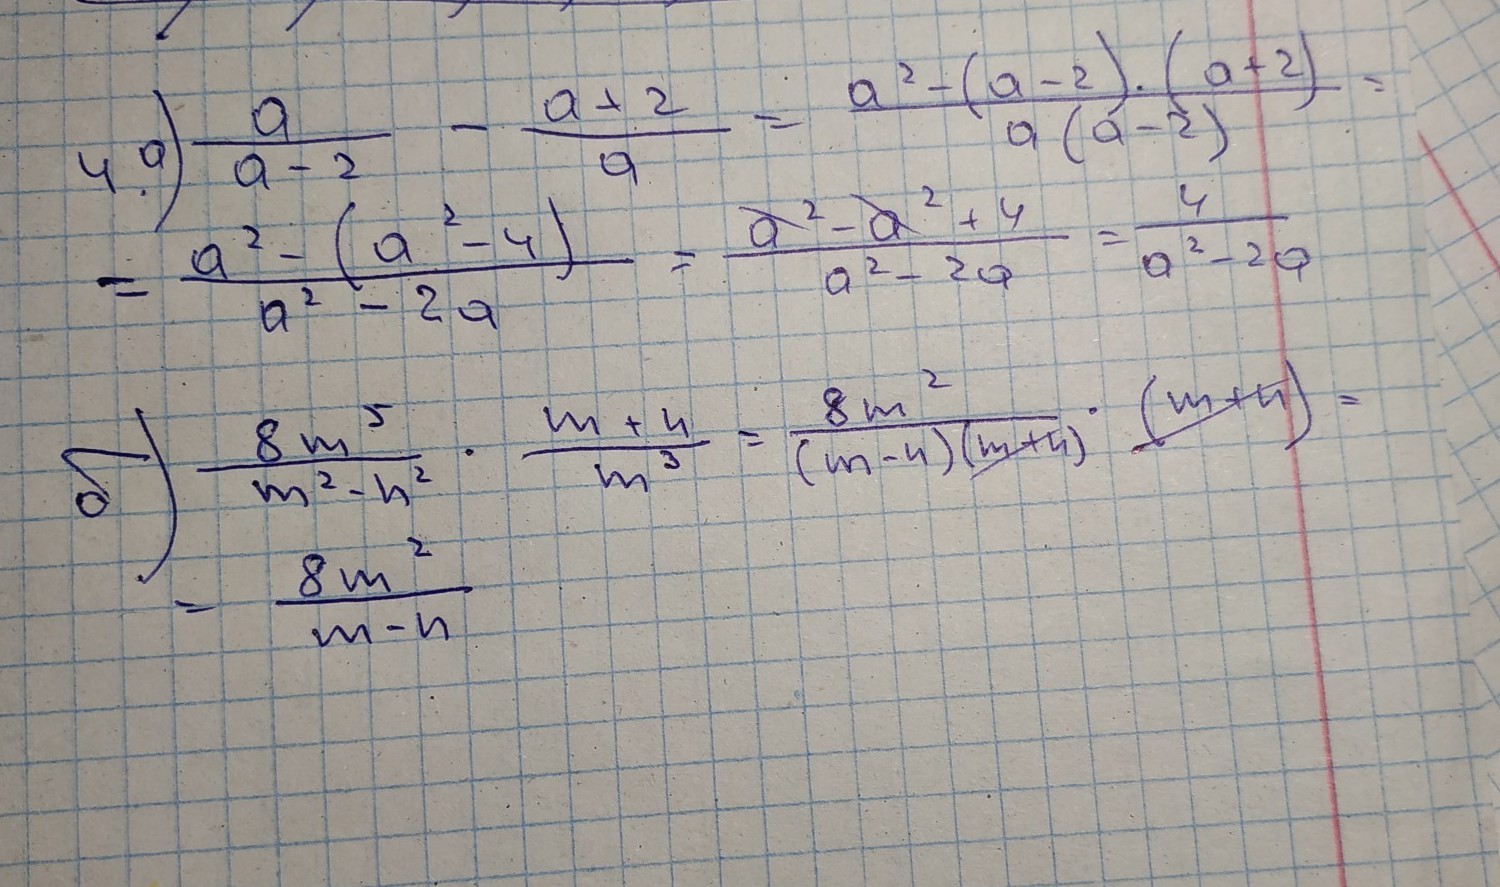 4.а) a/(a-2) - (a+2)/a = (a² - (a-2)·(a+2))/(a(a-2)) =
= (a² - (a² - 4))/(a² - 2a) = (a² - a² + 4)/(a² - 2a) = 4/(a² - 2a)
б) 8m⁵/(m² - n²) · (m+n)/m³ = 8m²/((m-n)(m+n)) · (m+n) =
= 8m²/(m-n)